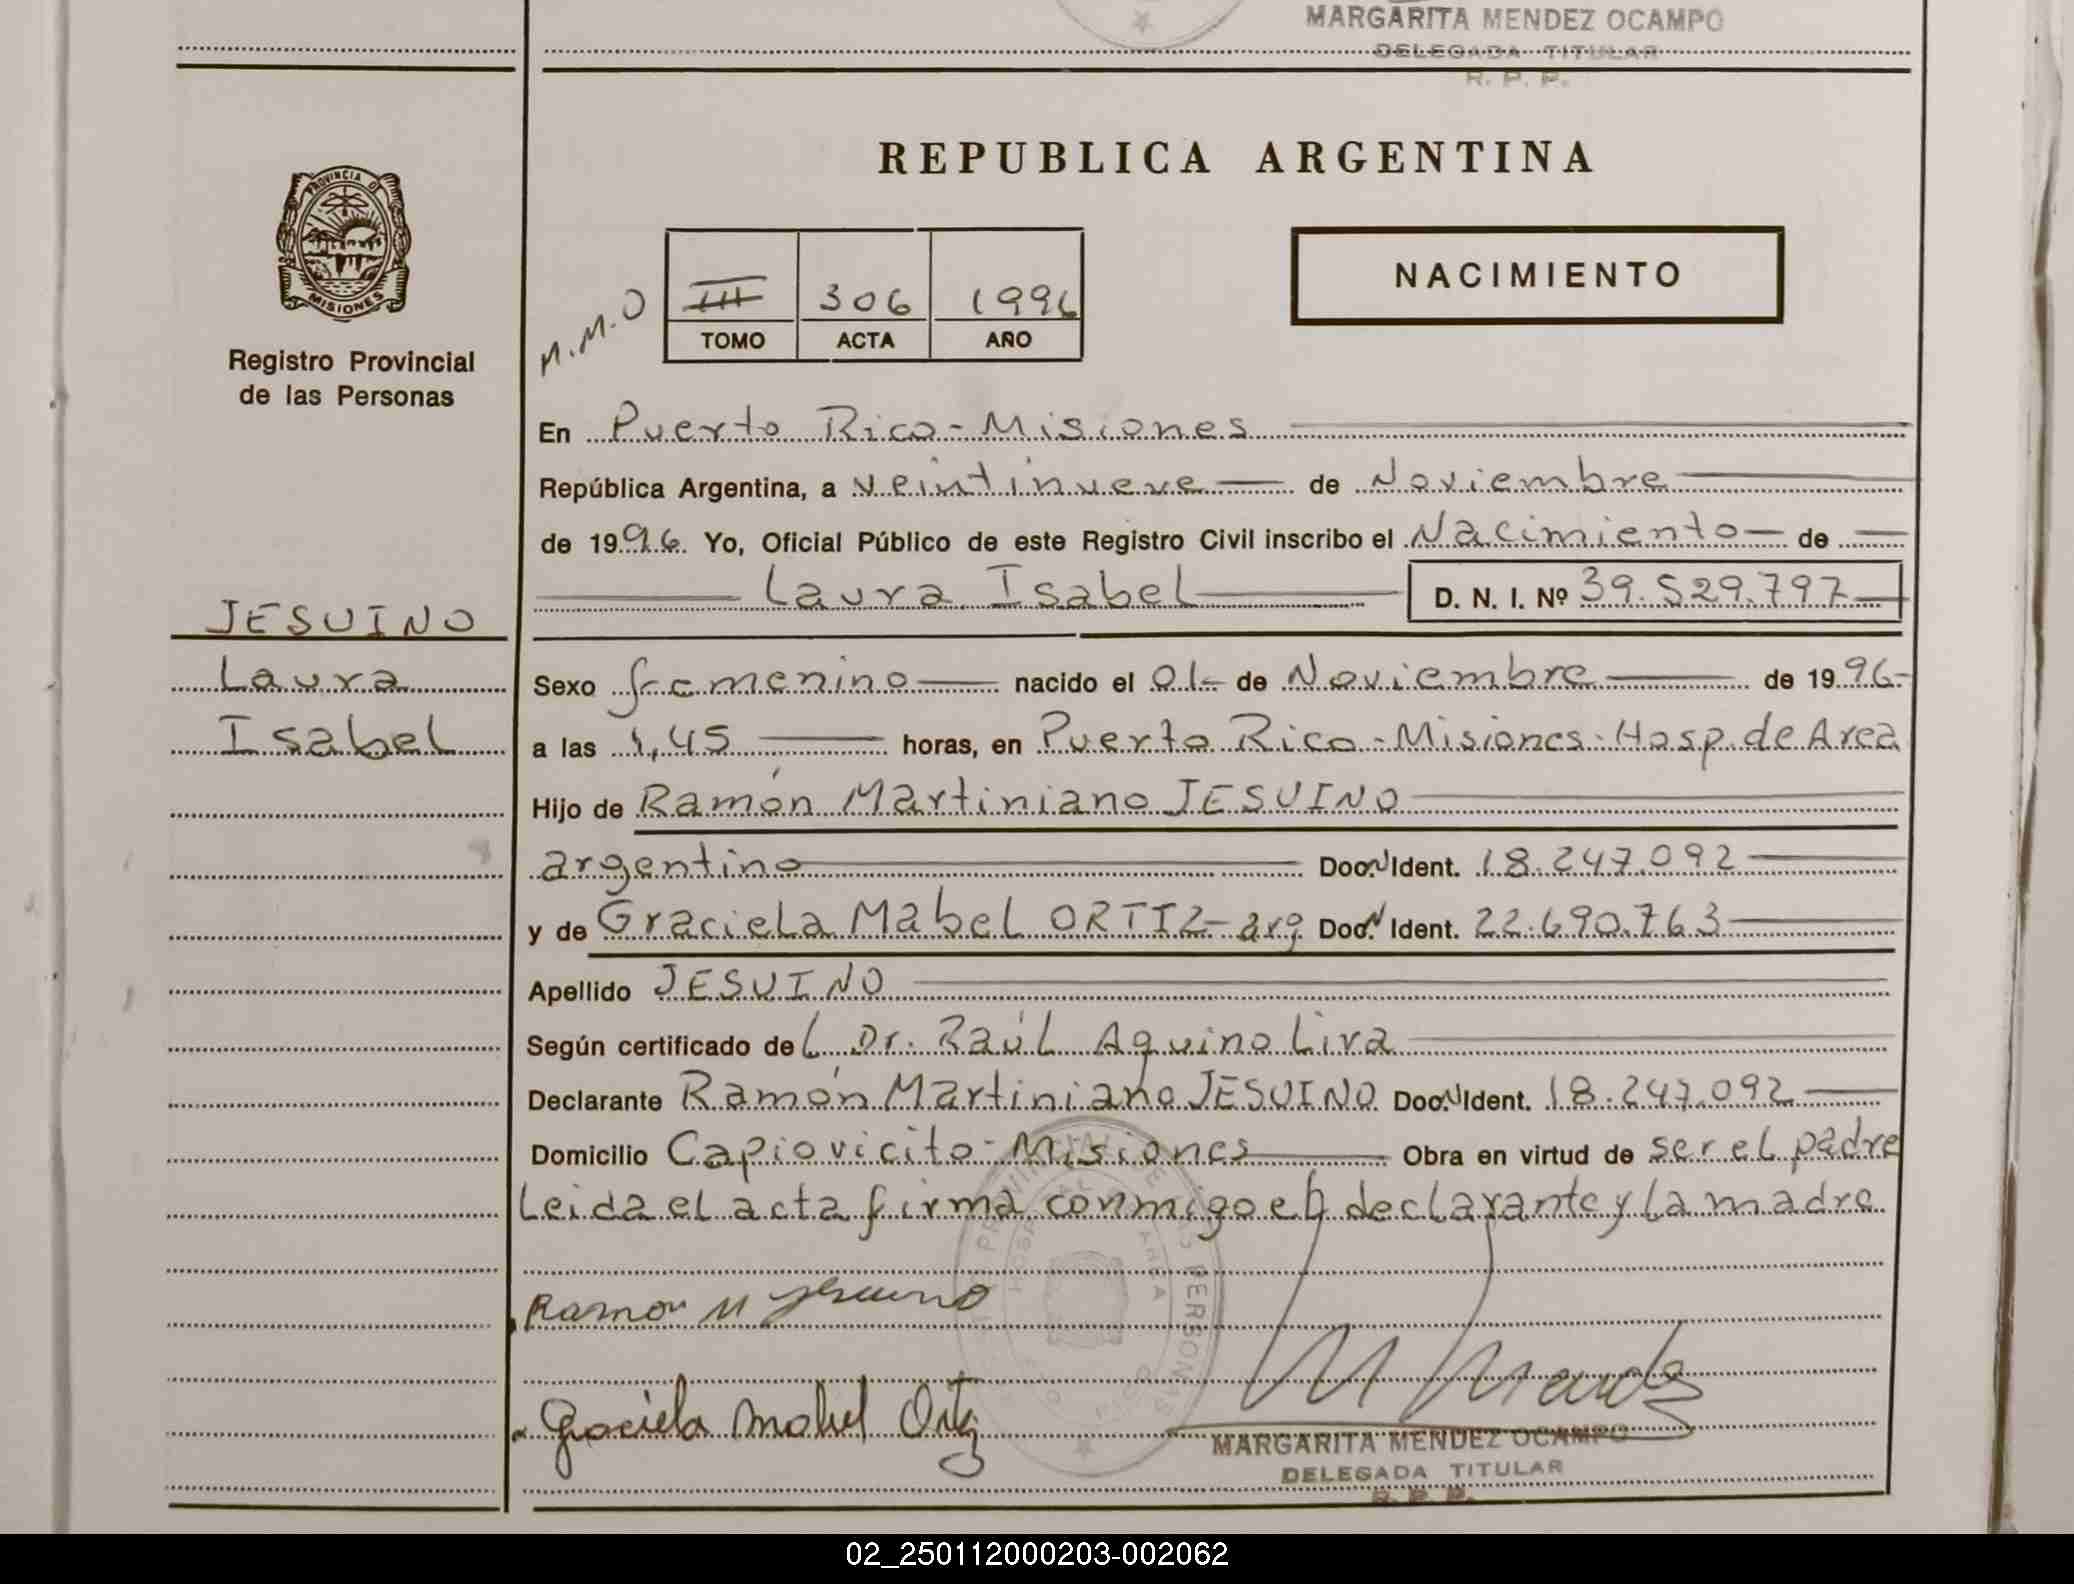 MARGARITA MENDEZ OCAMPO
DELEGADA TITULAR
R. P. P.
PROVINCIA D
MISIONES
Registro Provincial
de las Personas
JESUINO
Laura
Isabel
REPUBLICA ARGENTINA
M.M.O
III 306 1996
TOMO ACTA AÑO
NACIMIENTO
En Puerto Rico - Misiones
República Argentina, a veintinueve de Noviembre
de 1996 Yo, Oficial Público de este Registro Civil inscribo el Nacimiento de
Laura Isabel D. N. I. Nº 39.529.797
Sexo femenino nacido el 01 de Noviembre de 1996
a las 1,45 horas, en Puerto Rico - Misiones - Hosp. de Area
Hijo de Ramón Martiniano JESUINO
argentino Doc. N Ident. 18.247.092
y de Graciela Mabel ORTIZ - arg Doc. N Ident. 22.690.763
Apellido JESUINO
Según certificado del Dr. Raúl Aquino Lira
Declarante Ramón Martiniano JESUINO Doc. N Ident. 18.247.092
Domicilio Capiovicito - Misiones Obra en virtud de ser el padre
Leida el acta firma conmigo el declarante y la madre
Ramon M Jesuino
Graciela Mabel Ortiz
M Mendez
MARGARITA MENDEZ OCAMPO
DELEGADA TITULAR
R. P. P.
02_250112000203-002062